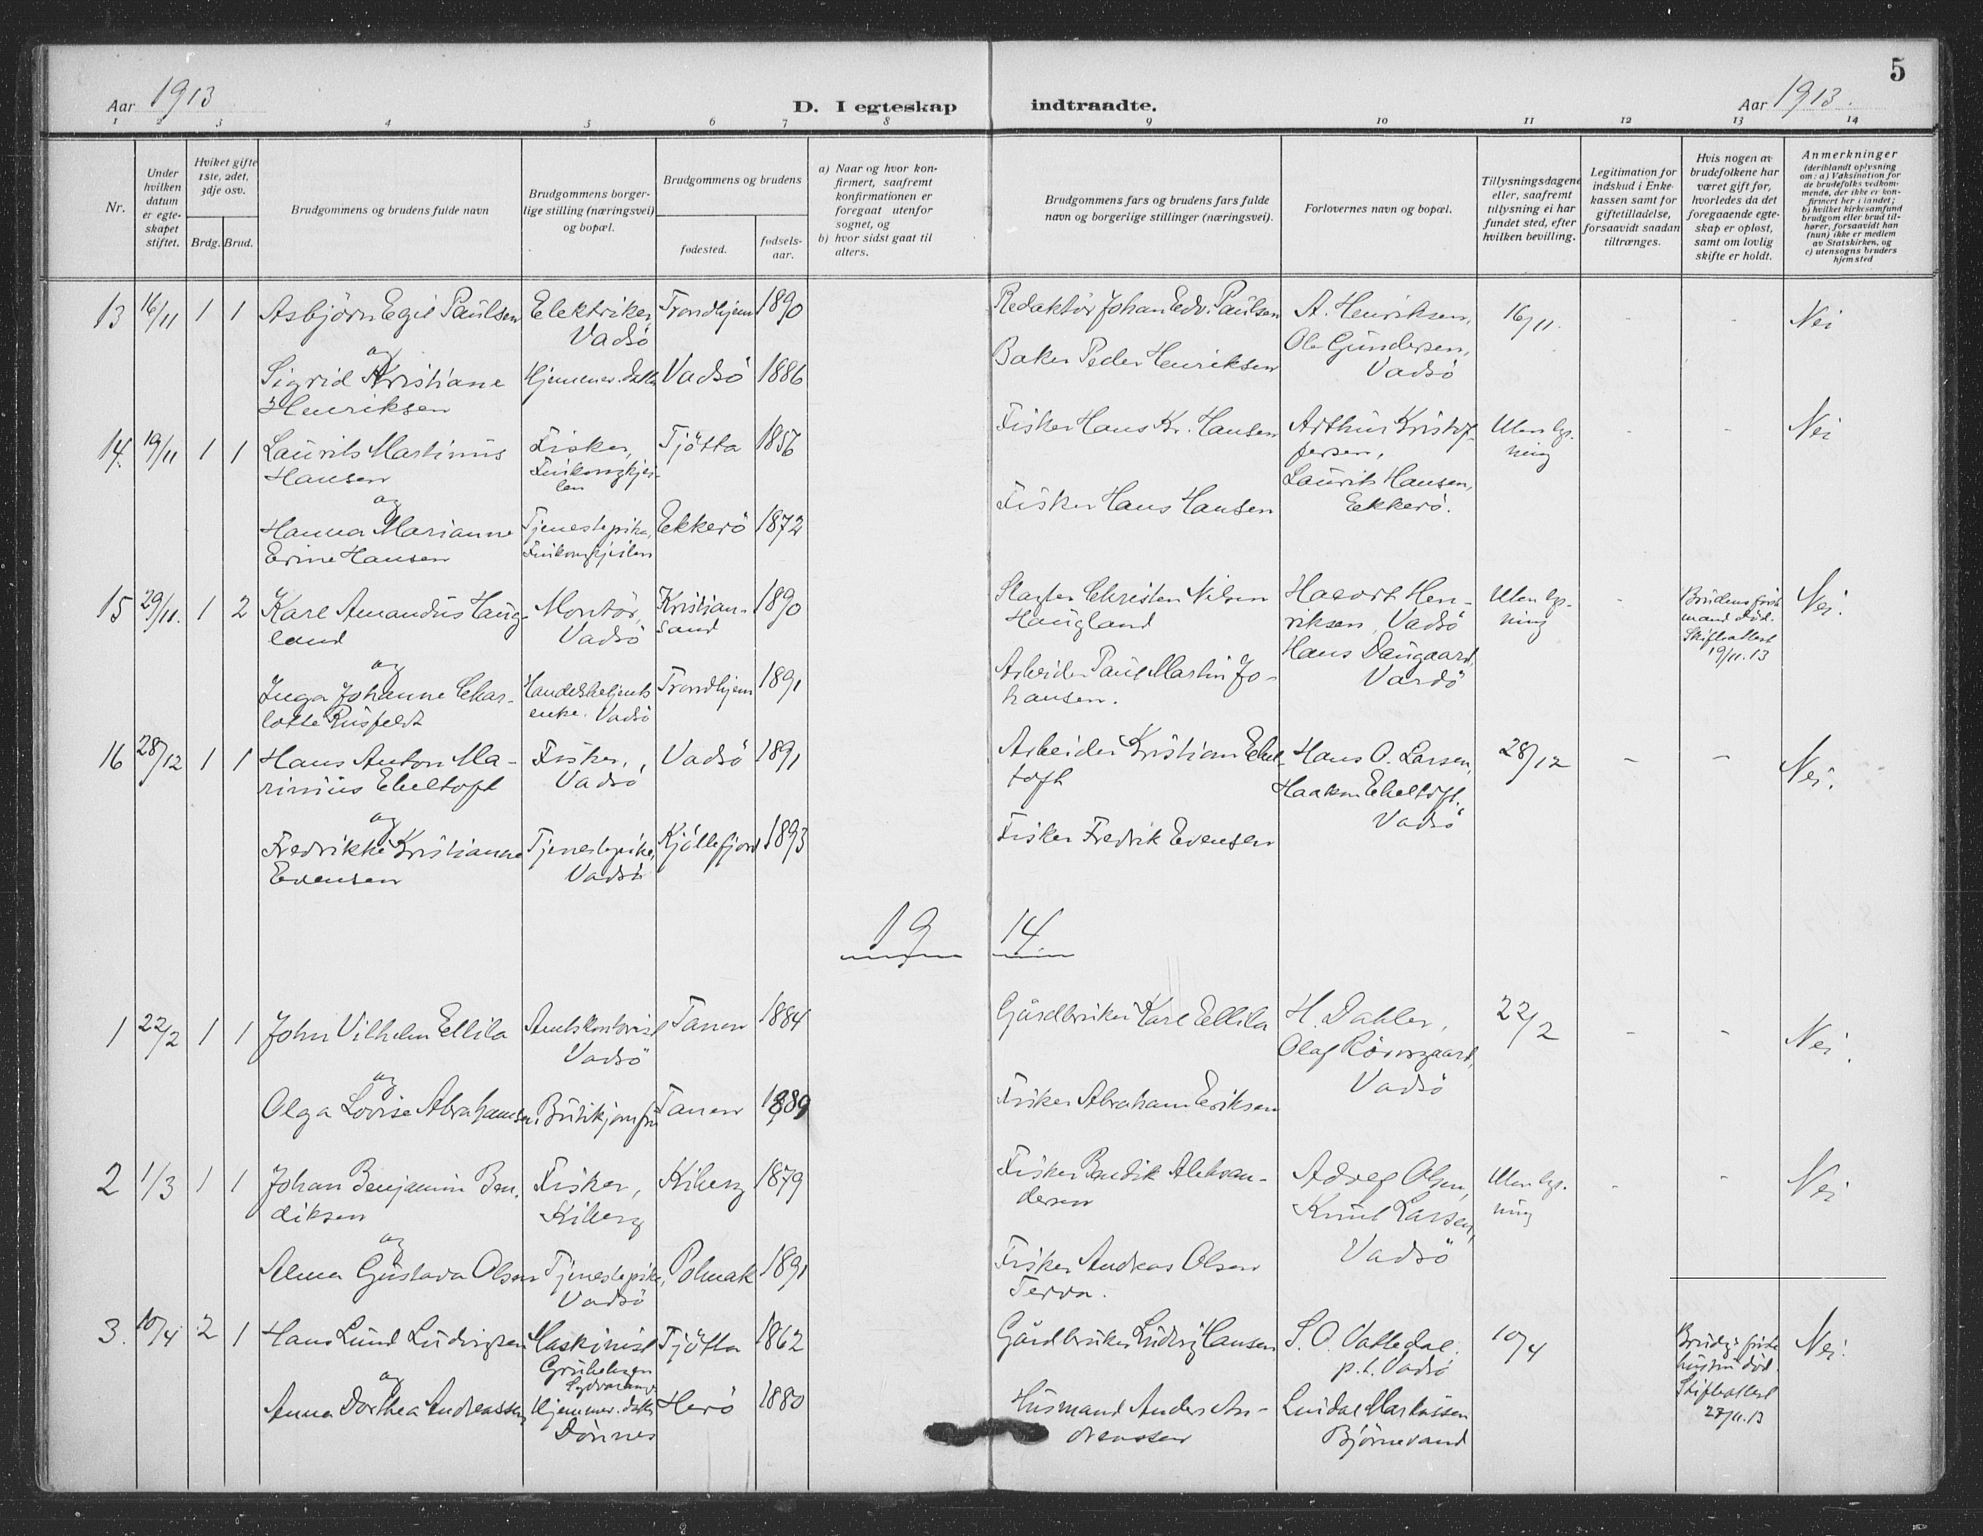 5
Aar 1913
D. I egteskap indtraadte.
Aar 1913.
1 2 3 4 5 6 7 8 9 10 11 12 13 14
Nr.
Under hvilken datum er egteskapet stiftet.
Hvilket gifte 1ste, 2det, 3dje osv.
Brdg. Brud.
Brudgommens og brudens fulde navn
Brudgommens borgerlige stilling (næringsvei) og bopæl.
Brudgommens og brudens
fødested.
fødselsaar.
a) Naar og hvor konfirmert, saafremt konfirmationen er foregaat utenfor sognet, og
b) hvor sidst gaat til alters.
Brudgommens fars og brudens fars fulde navn og borgerlige stillinger (næringsvei).
Forlovernes navn og bopæl.
Tillysningsdagene eller, saafremt tillysning ei har fundet sted, efter hvilken bevilling.
Legitimation for indskud i Enkekassen samt for giftetilladelse, forsaavidt saadan tiltrænges.
Hvis nogen av brudefolkene har været gift før, hvorledes da det foregaaende egteskap er opløst, samt om lovlig skifte er holdt.
Anmerkninger
(deriblandt oplysning om: a) Vaksination for de brudefolks vedkommende, der ikke er konfirmert her i landet; b) hvilket kirkesamfund brudgom eller brud tilhører, forsaavidt han (hun) ikke er medlem av Statskirken, og c) utensogns bruders hjemsted
13 16/11 1 1 Asbjørn Egil Paulsen Elektriker Trondhjem 1890 Redaktör Johan Edv. Paulsen A. Henriksen, 16/11. - - Nei
Vadsö
og
Sigrid Kristiane Hjemmev. datter Vadsö 1886 Baker Peder Henriksen Ole Gundersen,
Henriksen Vadsö
14. 19/11 1 1 Laurits Martinus Fisker, Tjötta 1856 Fisker Hans Kr. Hansen Arthur Kristof- Uten lys- - - Nei
Hansen fersen, ning
og
Hanna Marianne Tjenestepike, Ekkerö 1872 Fisker Hans Hansen Laurits Hansen,
Erine Hansen Ekkerö.
15 29/11. 1 2 Karl Amandus Haug- Montör, Kristian- 1890 Christen Nilsen Haavort Hen- Uten lys- - Brudens first Nei.
land Vadsö sand Haugland riksen, Vadsö ning mand död.
Skifteattest
19/11.13
og
Inga Johanne Char- Trondhjem 1891 Arbeider Paul Martin Jo- Hans Daugaard,
lotte Rusfeldt enke. Vadsö hansen. Vardö
16 28/12 1 1 Hans Anton Ma- Fisker, Vadsö 1891 Arbeider Kristian Ebel- Hans O. Larsen, 28/12 - - Nei.
rinius Ebeltoft Vadsö toft Haakon Ebeltoft.
Vadsö
og
Fredrikke Kristianne Tjenestepike, Kjöllefjord 1893 Fisker Fredrik Evensen
Evensen Vadsö
19 14.
1 22/2 1 1 John Vilhelm Ellila Amtskontorist Tanen 1884 Gårdbruker Karl Ellila H. Dahler, 22/2 - - Nei.
Vadsö Olaf
Vadsö
og
Olga Lovise Abrahamsen Butikjomfru Tanen 1889 Fisker Abraham Eriksen
2 1/3 1 1 Johan Benjamin Ben- Fisker, Kiberg 1879 Fisker Bendik Aleksan- Olsen, Uten lys- - - Nei
diksen Kiberg dersen Knut Larsen, ning
Vadsö
og
Alma Gustava Olsen Tjenestepike, Polmak 1891 Fisker Andreas Olsen
Vadsö Terva.
3. 10/4 2 1 Hans Lund Ludvigsen Maskinist Tjötta 1862 Gårdbruker Ludvig Hansen S. O. Vattedal. 10/4 Brudg. förste Nei.
Sydvaranger p.t. Vadsö hustru död.
Skifteattest
27/11.13
og
Anna Dorthea Andreassen Hjemmev. datter Herö 1880 Husmand Anders An- Lindal Markussen
Dönnes dreassen Björnevand